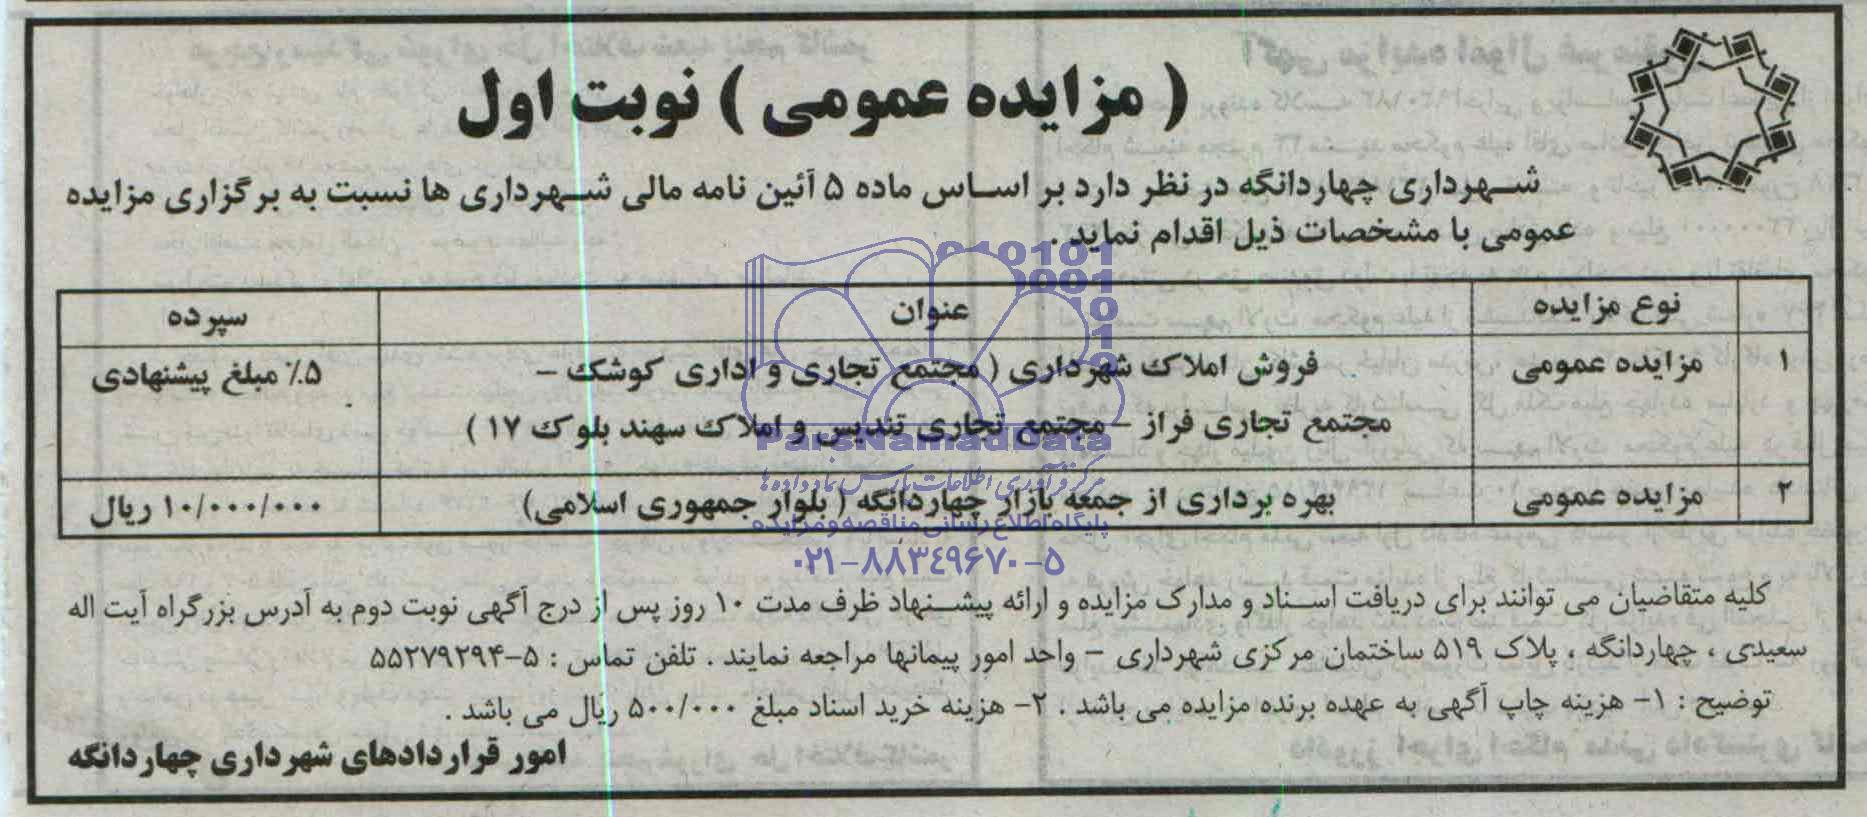 ( مزایده عمومی ) نوبت اول
شهرداری چهاردانگه در نظر دارد بر اساس ماده ۵ آئین نامه مالی شهرداری ها نسبت به برگزاری مزایده
عمومی با مشخصات ذیل اقدام نماید .
نوع مزایده عنوان سپرده
۱ مزایده عمومی فروش املاک شهرداری ( مجتمع تجاری و اداری کوشک – ۵٪ مبلغ پیشنهادی
مجتمع تجاری فراز – مجتمع تجاری تندیس و املاک سهند بلوک ۱۷ )
۲ مزایده عمومی بهره برداری از جمعه بازار چهاردانگه ( بلوار جمهوری اسلامی) ۱۰/۰۰۰/۰۰۰ ریال
ParsNamadData
مرکز فرآوری اطلاعات پارس نماد داده ها
پایگاه اطلاع رسانی مناقصه و مزایده
۰۲۱-۸۸۳۴۹۶۷۰-۵
کلیه متقاضیان می توانند برای دریافت اسناد و مدارک مزایده و ارائه پیشنهاد ظرف مدت ۱۰ روز پس از درج آگهی نوبت دوم به آدرس بزرگراه آیت اله
سعیدی ، چهاردانگه ، پلاک ۵۱۹ ساختمان مرکزی شهرداری – واحد امور پیمانها مراجعه نمایند . تلفن تماس : ۵-۵۵۲۷۹۲۹۴
توضیح : ۱- هزینه چاپ آگهی به عهده برنده مزایده می باشد . ۲- هزینه خرید اسناد مبلغ ۵۰۰/۰۰۰ ریال می باشد .
امور قراردادهای شهرداری چهاردانگه